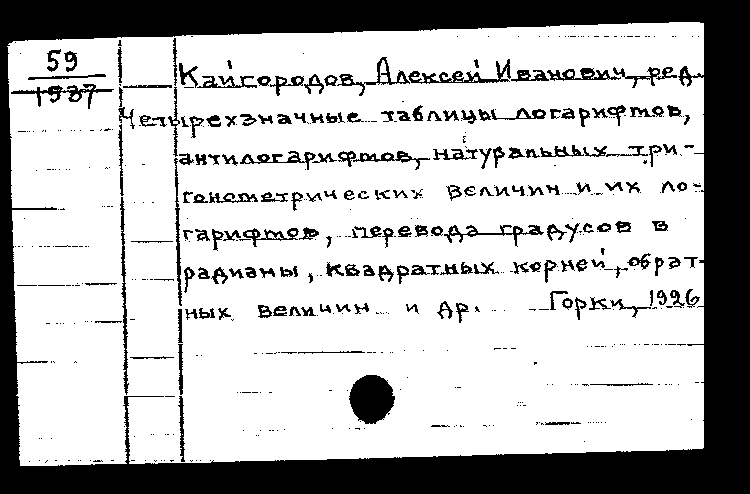 59
1587
Кайгородов, Алексей Иванович, ред.
Четырехзначные таблицы логарифмов,
антилогарифмов, натуральных три-
гонометрических величин и их ло-
гарифмов, перевода градусов в
радианы, квадратных корней, обрат-
ных величин и др. Горки, 1926